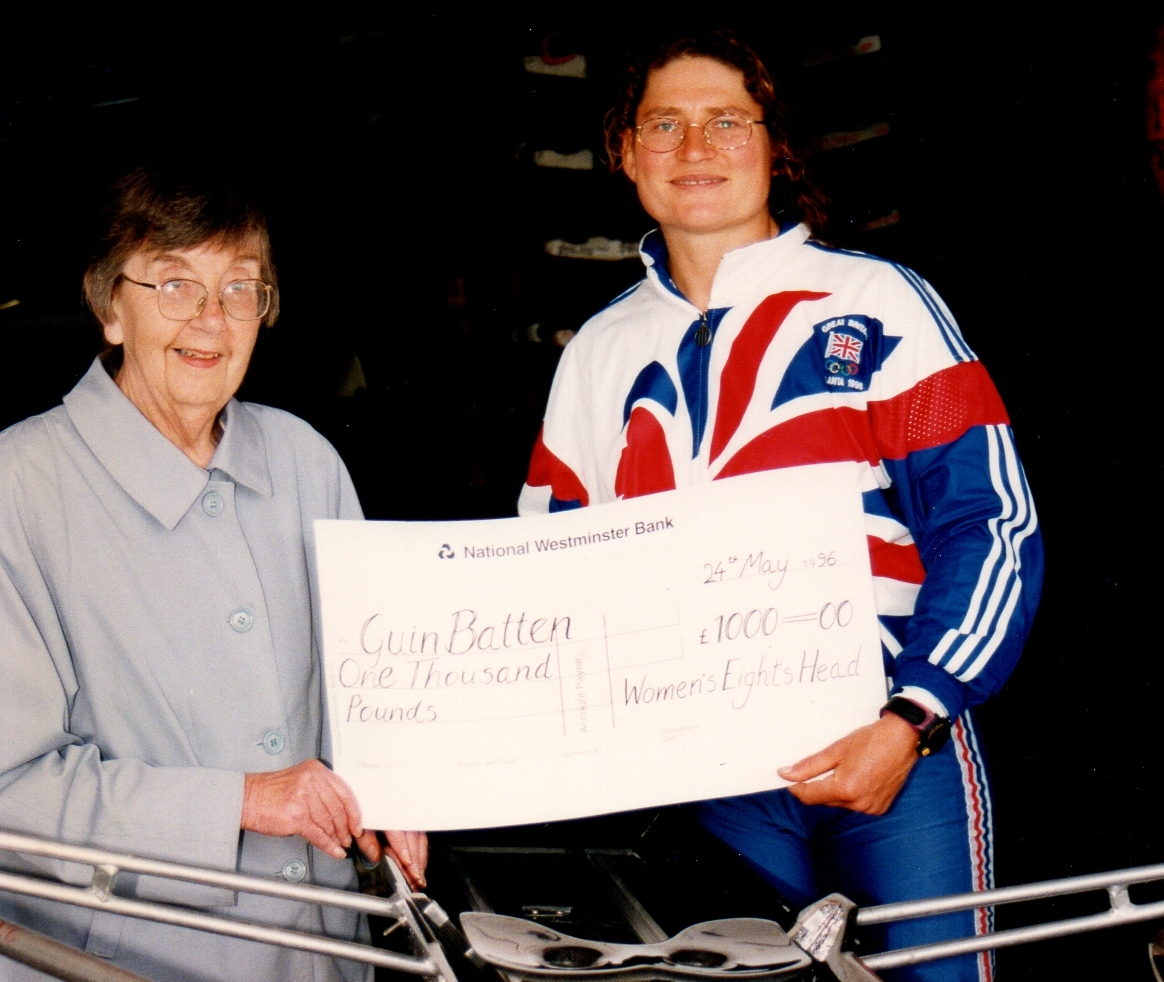 GREAT BRITA
ANTA 1996
National Westminster Bank
24th May 1996
Guin Batten
£1000=00
One Thousand
Pounds
Account Payee
Women's Eights Head